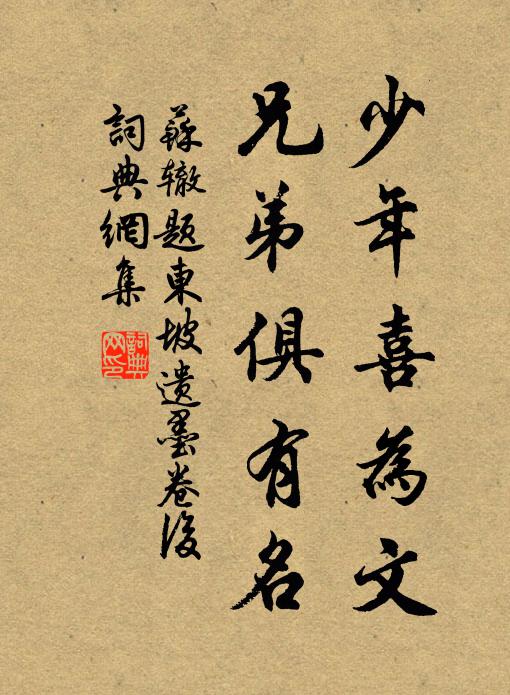 少年喜為文
兄弟俱有名
蘇辙題東坡遺墨卷後
詞典網集
詞典网印